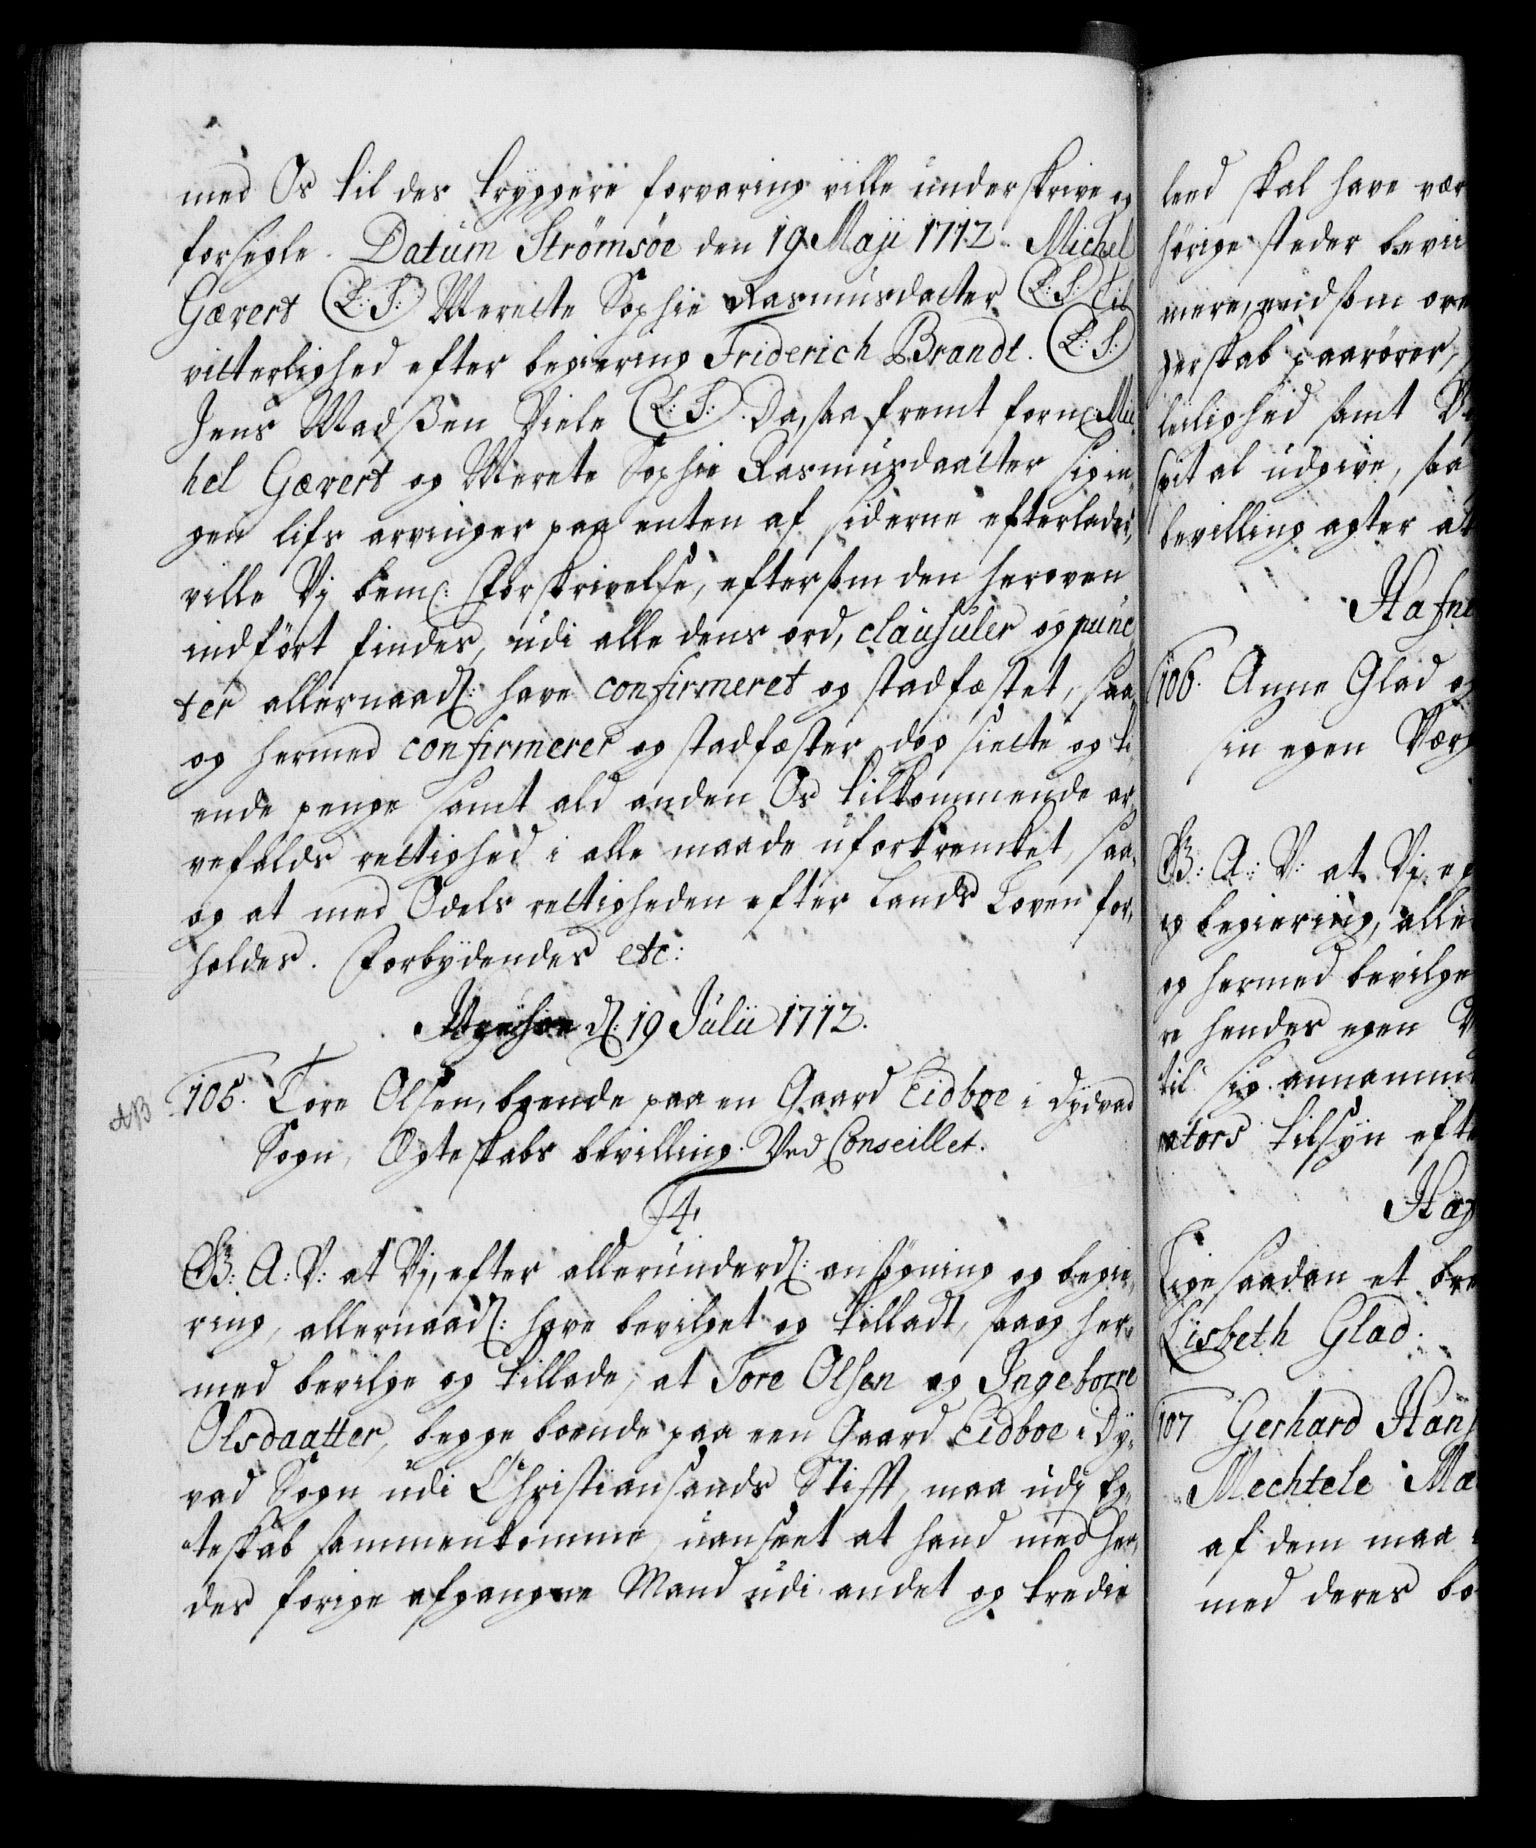 med Os til des tryggere forvaring ville underskrive og
forsegle. Datum Strømsøe den 19 Maji 1712. Michel
Gævert (L: S:) Merette Sophie Rasmusdatter (L: S:) Til
vitterlighed efter begiering Friderich Brandt. (L: S:
Jens Madsßen Viele (L: S:). Da, saa fremt forne: Mi-
hel Gævert og Merete Sophie Rasmusdaatter sig in-
gen lifs arvinger paa enten af siderne efterlader,
ville Vj bem: Forskrivelse, eftersom den heroven
indført findes, udi alle dens ord, clausuler og punc
ter allernaad: have confirmeret og stadfæstet, saa-
og hermed confirmerer og stadfæster, dog siette og ti-
ende penge samt ald anden Os tilkommende ar-
vefalds rettighed i alle maade uforkrenket, saa-
og at med Odels rettigheden efter Lands Loven for-
holdes. Forbydendes etc:
d: 19 Julii 1712.
AB
105. Tore Olsen, boende paa en Gaard Eidboe i Dydvad
Sogn, Ægteskabs bevilling. Ved Conseillet.
F4.
G: A: V: at Vj, efter allerunderd: ansøgning og begie-
ring, allernaad: have bevilget og tilladt, saa og her-
med bevilge og tillade, at Tore Olsen og Ingeborre
Olsdaatter, begge boende paa een Gaard Eidboe i Dy-
vad Sogn udi Christiansands Stift, maa udj Eg-
teskab sammenkomme, uanseet at hand med hen-
des forige afgangne Mand udi andet og tredie
leed skal have vær
hørige steder bevii
mere, end som ore
gerskab paarører,
leilighed samt
pital udgive, saa
bevilling agter at
Hafne
106. Anne Glad og
sin egen Værg
G: A: V: at Vj, e
og begiering, alle
og hermed bevilge
re hendes egen V
til sig annamm
ators tilsyn efte
Haf
Ligesaadan et bre
Lisbeth Glad.
107 Gerhard Hans
Mechtele Ma
af dem maa
med deres bo